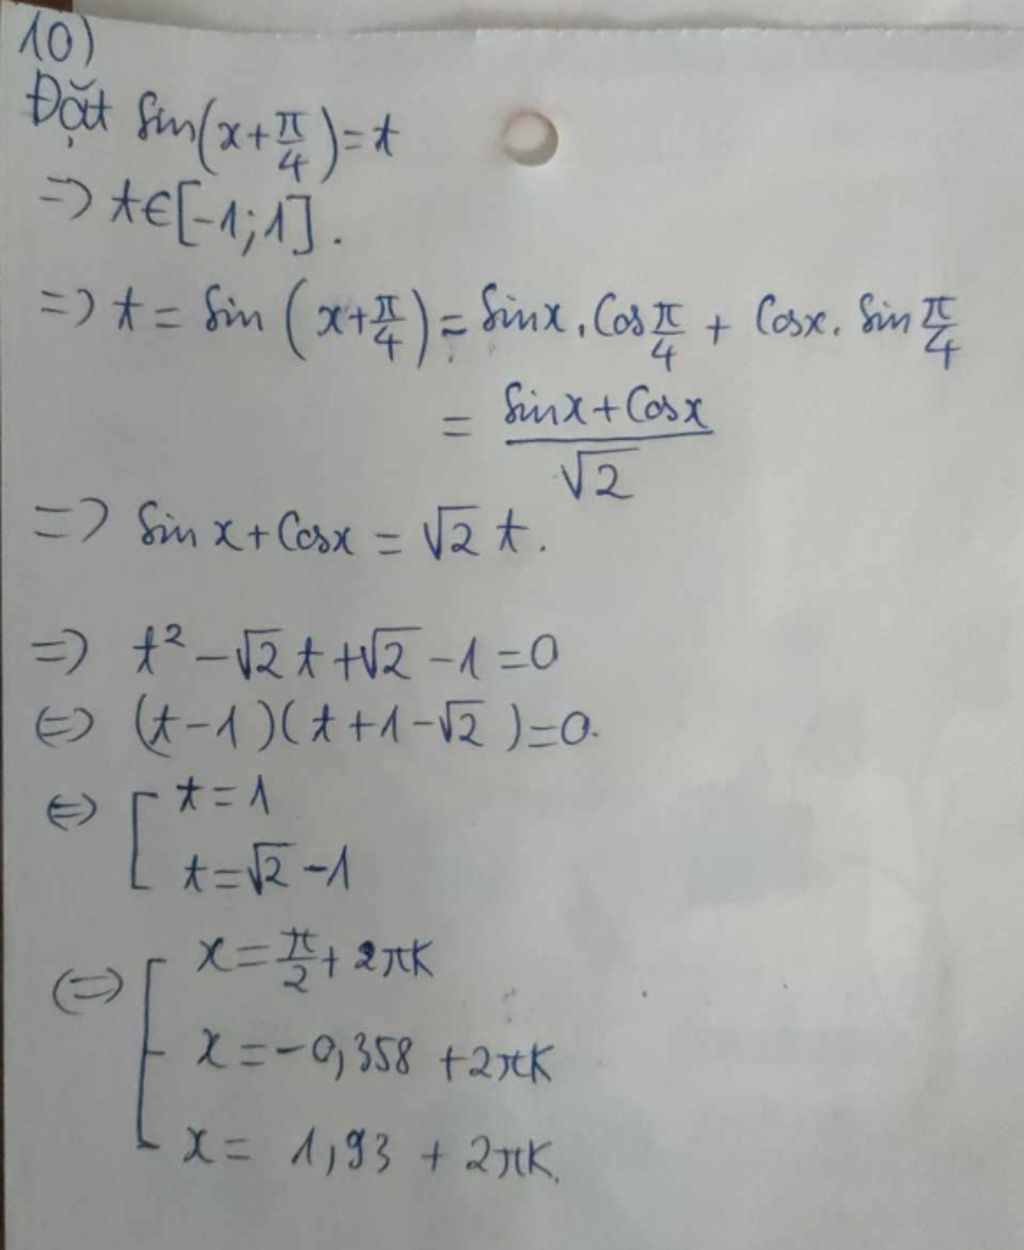 10)
Đặt Sin(x+π/4)=t
=> t∈[-1;1].
=> t = Sin (x+π/4) = Sinx.Cosπ/4 + Cosx.Sinπ/4
= (Sinx+Cosx)/√2
=> Sinx+Cosx = √2 t.
=> t²-√2t+√2-1=0
<=> (t-1)(t+1-√2)=0.
<=> [ t=1
t=√2-1
<=> [ x=π/2+2πK
x=-0,358 +2πK
x= 1,93 + 2πK.